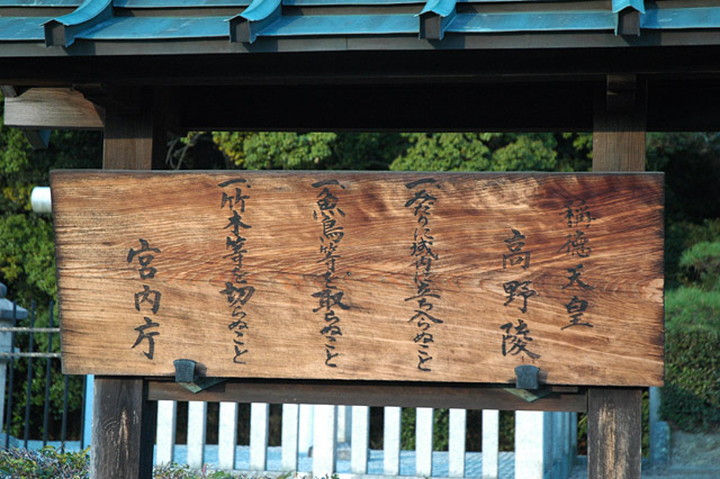 稱德天皇
高野陵
一、みだりに域内に立ち入らぬこと
一、魚鳥等を取らぬこと
一、竹木等を切らぬこと
宮内庁